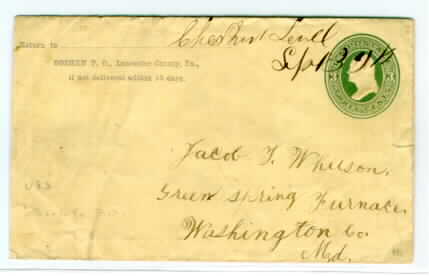 Chestnut Level
Sept 3
Return to
GOSHEN P. O., Lancaster County, Pa.,
if not delivered within 10 days.
THREE CENTS
Jacob T. Whitson.
Green Spring Furnace.
Washington Co
Md.